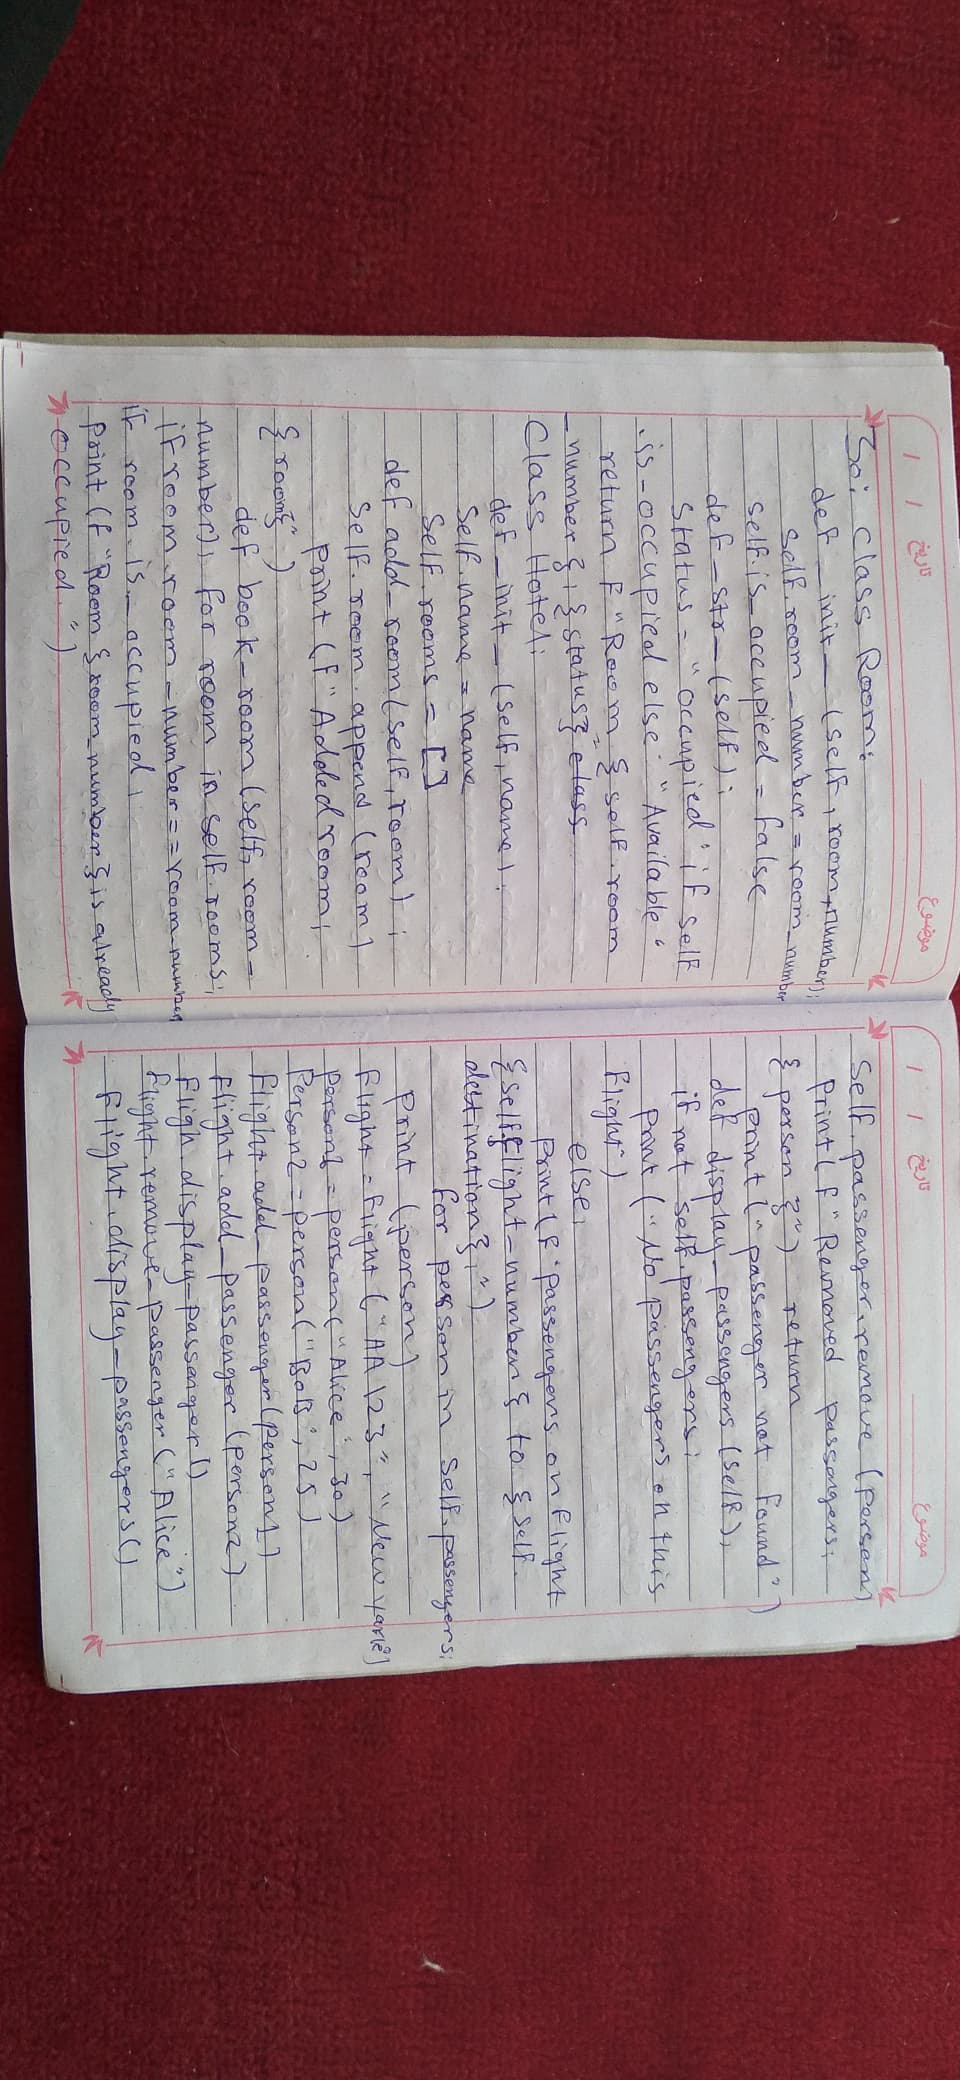 تاریخ / / موضوع
30: class Room:
def __init__ (self, room_number):
self.room_number = room_number
self.is_occupied = false
def __str__ (self):
status = "occupied" if self
.is_occupied else "Available"
return f "Room {self.room
_number}: {status}" class
Class Hotel:
def __init__ (self, name):
self.name = name
self.rooms = []
def add_room (self, room):
self.room.append (room)
print (f "Added room:
{room}")
def book_room (self, room_
number): for room in self.rooms:
if room.room_number == room_number
if room.is_occupied:
print (f "Room {room_number} is already
occupied.")
تاریخ / / موضوع
self.passenger.remove (person)
print (f "Removed passangers:
{person}") return
print ("passenger not found")
def display_passengers (self):
if not self.passengers:
print ("No passengers on this
flight")
else:
print (f "passengers on flight
{self.flight_number} to {self.
destination}:")
for person in self.passengers:
print (person)
flight = flight ("AA123", "New York")
person1 = person ("Alice", 30)
Person2 = person ("Bob", 25)
flight.add_passenger (person1)
flight.add_passenger (person2)
fligh.display_passanger()
flight.remove_passenger ("Alice")
flight.display_passengers()